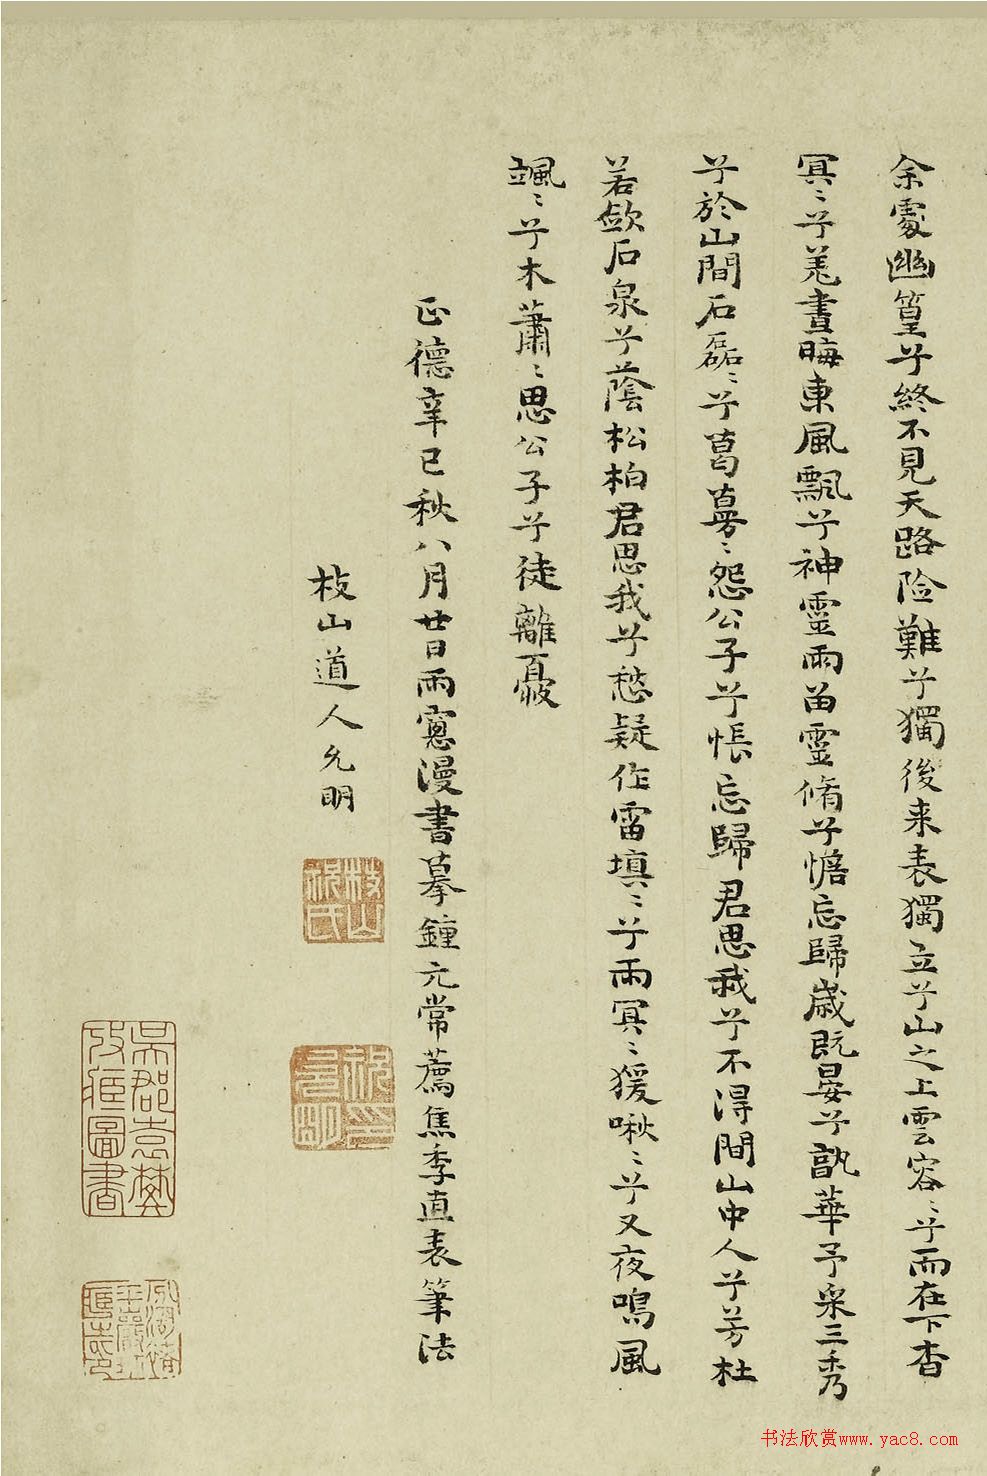 余處幽篁兮終不見天路险難兮獨後来表獨立兮山之上雲容〻兮而在下杳
冥〻兮羌晝晦東風飄兮神靈雨畄靈脩兮憺忘歸歲既晏兮孰華予采三秀
兮於山間石磊〻兮葛蔓〻怨公子兮悵忘歸君思我兮不得閒山中人兮芳杜
若歃石泉兮蔭松柏君思我兮愁疑作雷填〻兮雨冥〻猨啾〻兮又夜鳴風
颯〻兮木蕭〻思公子兮徒離憂
正德辛巳秋八月廿日雨窻漫書摹鍾元常薦焦季直表筆法
枝山道人允明
枝山祝氏
吳郡袁樊攷藏圖書
书法欣赏www.yac8.com